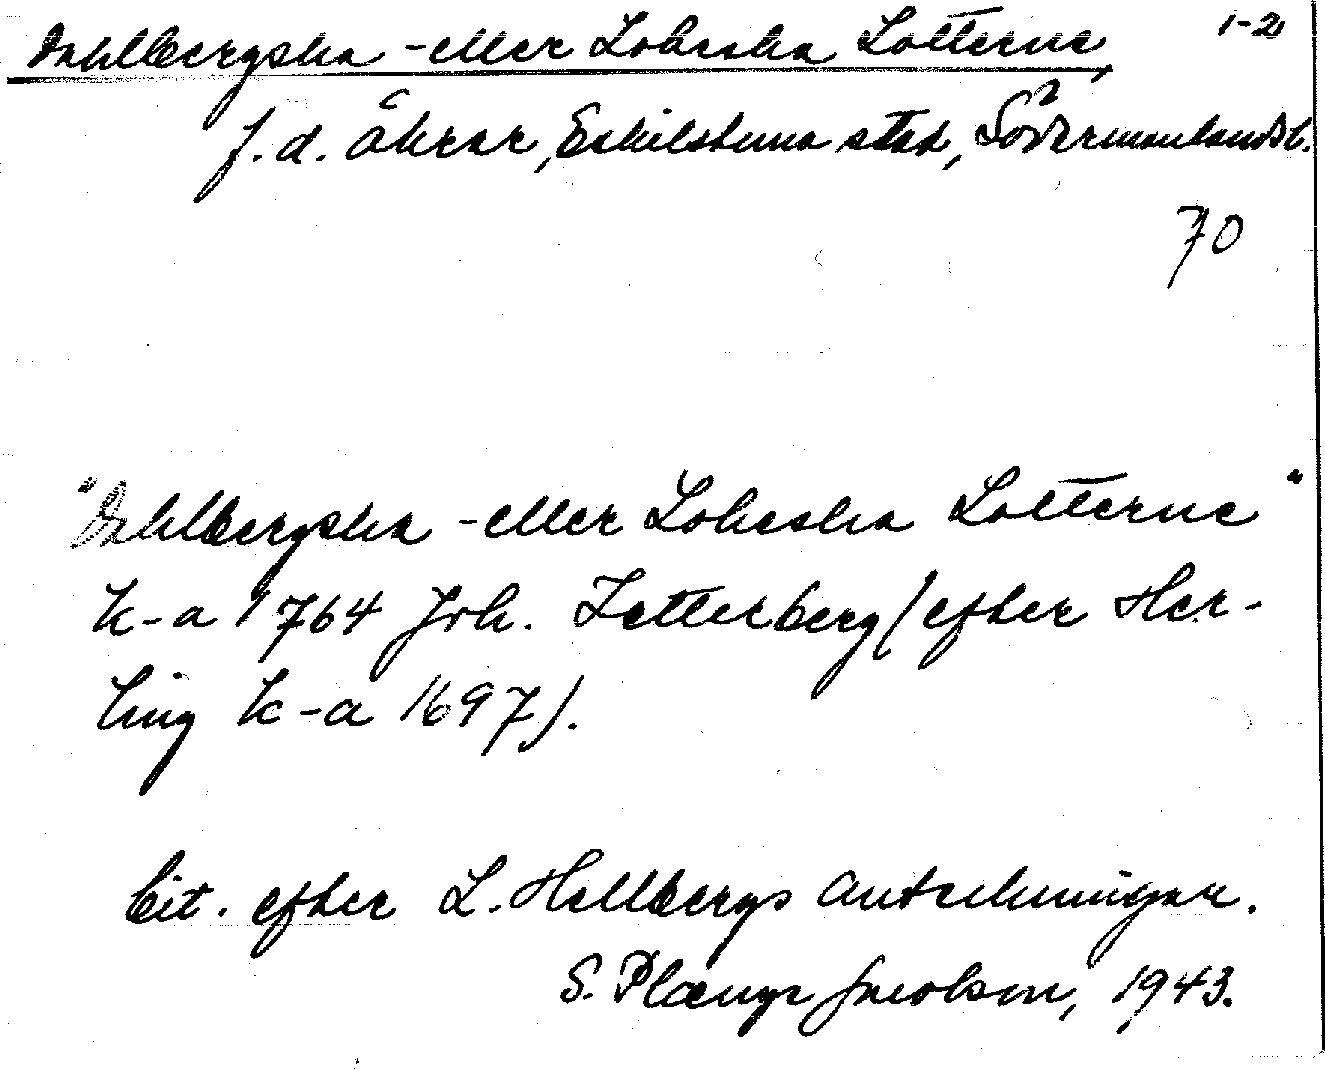 Dahlbergska -eller Loheska Lotterne, 1-2
f.d. åkrar, Eskilstuna stad, Södermanlands l.
70
"Dahlbergska -eller Loheska Lotterne"
k-a 1764 Joh. Zetterberg (efter Her-
ling k-a 1697).
Cit. efter L. Hellbergs anteckningar.
S. Plænge Jacobson, 1943.